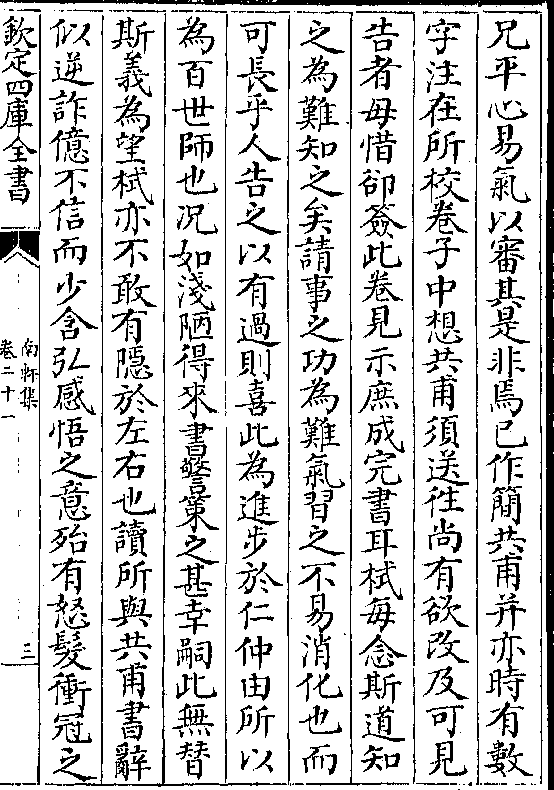 兄平心易氣以審其是非焉已作簡共甫并亦時有數
字注在所校卷子中想共甫須送徃尚有欲改及可見
告者毋惜卻簽此卷見示庶成完書耳栻每念斯道知
之為難知之矣請事之功為難氣習之不易消化也而
可長乎人告之以有過則喜此為進步於仁仲由所以
為百世師也况如淺陋得來書警策之甚幸嗣此無替
斯義為望栻亦不敢有隱於左右也讀所與共甫書辭
似逆詐億不信而少含弘感悟之意殆有怒髮衝冠之
欽定四庫全書
南軒集
卷二十一
三